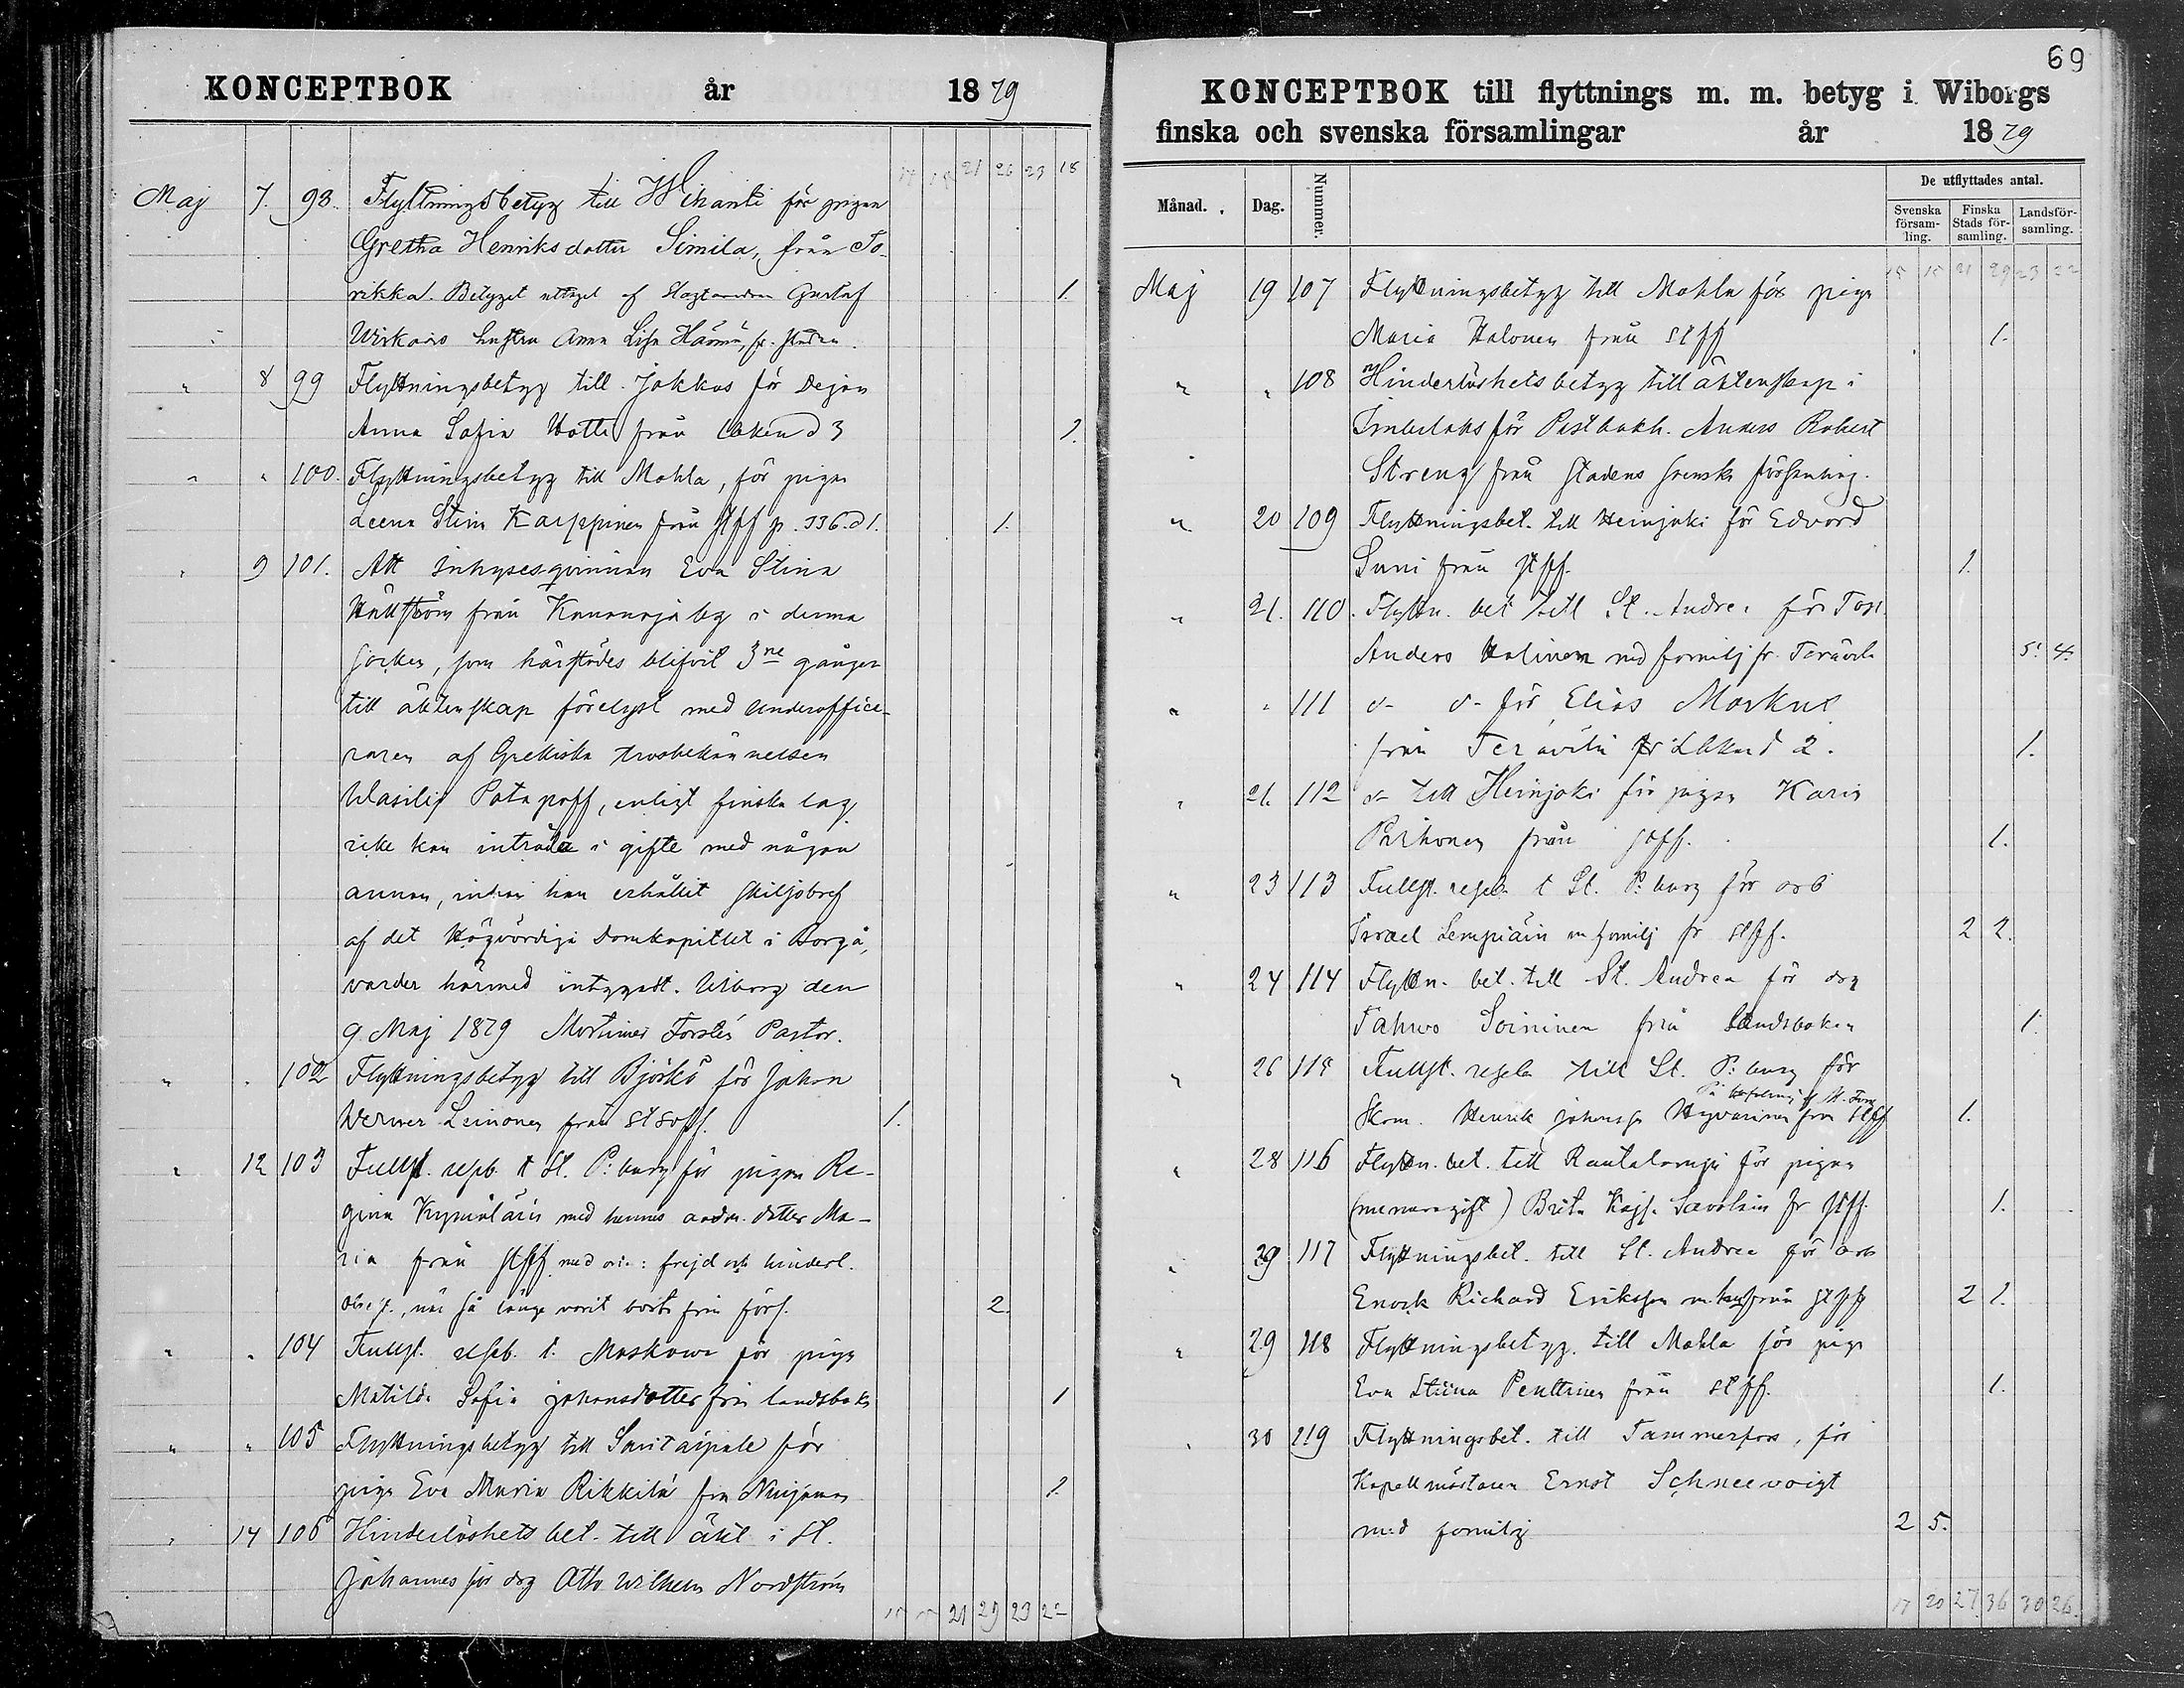 KONCEPTBOK år 1879
17 15 21 26 23 18
Maj 7. 98. Flyttningsbetyg till Wihanti för pigan
Gretha Henriksdotter Simila, från To-
rikka. Betyget uttaget af Gustaf 1.
Wirkais hustru Anna Lisa fr. staden.
" 8 99 Flyttningsbetyg till Jokkas för Dejan
Anna Sofia från Lbken d 3 1.
" " 100. Flyttningsbetyg till Mohla, för pigan
Leena Stina Karppinen från stff p. 336. d 1. 1.
" 9 101. Att Inhysesqvinnan Eva Stina
Hällström från i denna
socken, som härstädes blifvit 3ne gånger
till äktenskap förelyst med underoffice-
raren af Grekiska trosbekännelsen
Wasilij Potapoff, enligt finska lag
icke kan inträda i gifte med någon
annan, innan hon erhållit skiljobref
af det Högvördiga Domkapitlet i Borgå,
varder härmed intygadt. Wiborg den
9 Maj 1879 Mortimer Forstén Pastor.
" " 102 Flyttningsbetyg till Björkö för Johan
Werner Leinonen från 1.
" 12 103 Fullst. resb. t St. P:burg för pigan Re-
gina Kymäläin med hennes dotter Ma-
ria från stff med frejd och hinderl.
när så länge varit borta från förs. 2.
" " 104 Fullst. resb. t. Moskowa för piga
Matilda Sofia Johansdotter från landsbok 1
" " 105 Flyttningsbetyg till Savitaipale för
piga Eva Maria Rikkilä från 1.
" 14 106 Hinderlöshets bet. till äkt. i St.
Johannes för drg Otto Wilhelm Nordström
21 29 23 22
69
KONCEPTBOK till flyttnings m. m. betyg i Wiborgs
finska och svenska församlingar år 1879
Månad. Dag. Nummer. De utflyttades antal.
Svenska försam-ling. Finska Stads för-samling. Landsför-samling.
15 15 21 29 23 22
Maj 19 107 Flyttningsbetyg till Mohla för piga
Maria Halonen från stff 1.
" " 108 Hinderlöshetsbetyg till äktenskap i
för Postbokh. Anders Robert
Streng från stadens svenska församling.
" 20 109 Flyttningsbet. till Heinjoki för Edvard
Suni från stff. 1.
" 21. 110. Flyttn. bet till St. Andrea för
Anders Halinen med familj fr. Terävälä 5. 4.
" " 111 d- d- för Elias Markus
från Terävälä Lbken d 2. 1.
" 21. 112 d- till Heinjoki för pigan Karin
Parhonen från stff. 1.
" 23 113 Fullst. resb t St. P:burg för arb
Israel Lempiäin m familj fr stff. 2 2.
" 24 114 Flyttn. bet. till St. Andrea för drg
Tahwo Soininen från Landsboken 1.
" 26 115 Fullst. resb till St. P:burg för
På befallning af M. Fors
Skom. Henrik Johansson Hyvärinen från stff 1.
" 28 116 Flyttn. bet. till Rautalampi för pigan
Brita Kajs. Savolain fr stff. 1.
" 29 117 Flyttningsbet. till St. Andrea för arb
Enock Richard Eriksson m. från stff 2 1.
" 29 118 Flyttningsbetyg. till Mohla för piga
Eva Stiina Penttinen från stff. 1.
" 30 119 Flyttningsbet. till Tammerfors, för
Kapellmästaren Ernst Schneevoigt
med familj 2 5.
17 20 27 36 30 26.